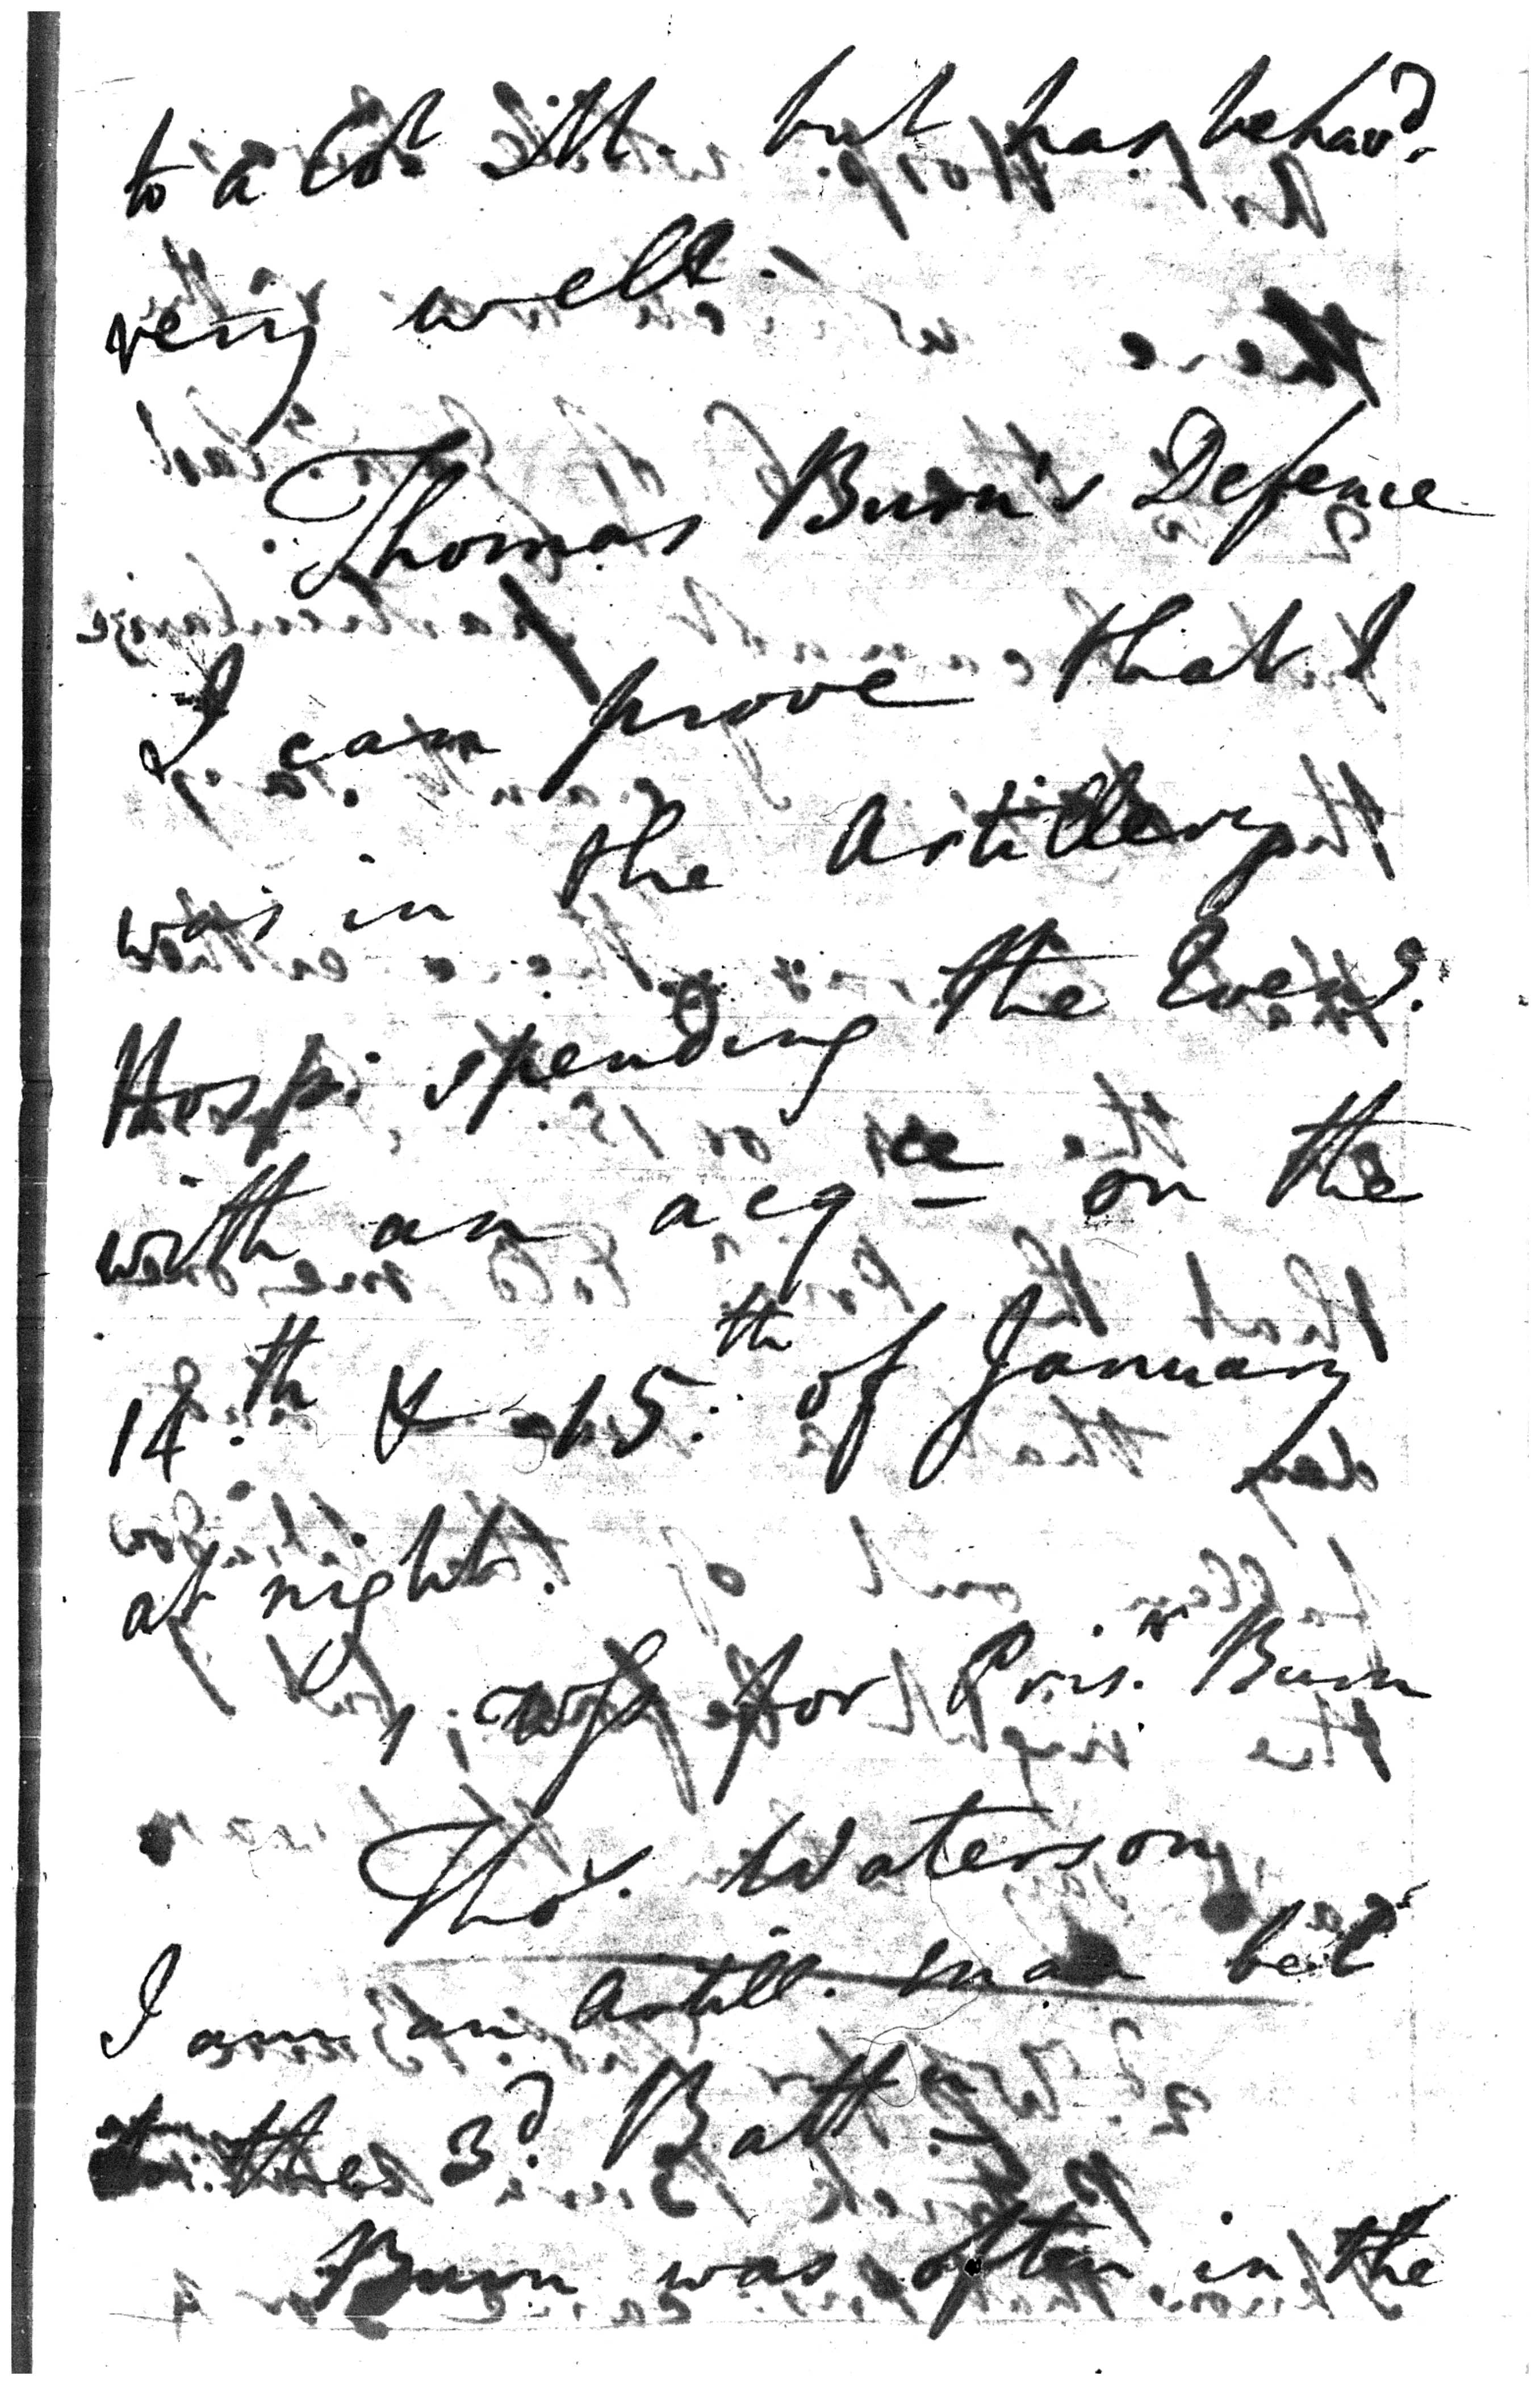 to a Ct. M. but has behav'd.
very well.
Thomas Burn's Defence
I can prove that I
was in the Artillery
Hosp: spending the Eveng.
with an acqce on the
14.th & 15.th of January
at night.
1 Wss for Pris.r Burn
Thos. Waterson
I am an Artill. man
to the 3d. Battn
Burn was often in the